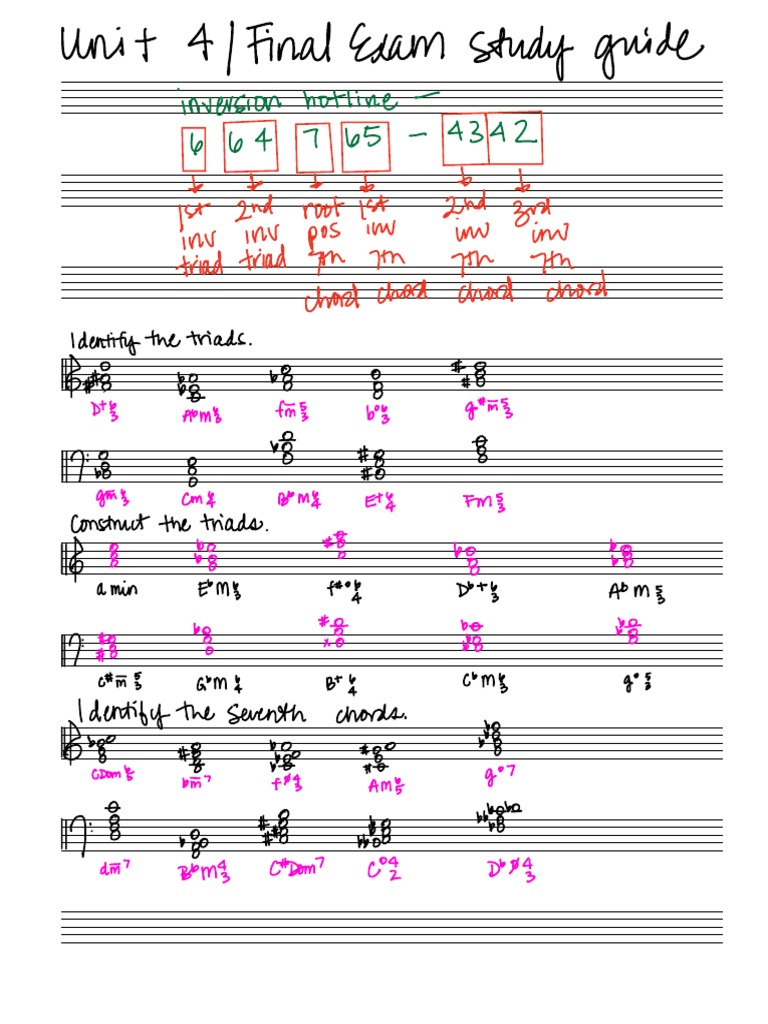 Unit 4 / Final Exam study guide
inversion hotline –
6 64 7 65 – 43 42
1st 2nd root 1st 2nd 3rd
inv inv pos inv inv inv
triad triad 7th 7th 7th 7th
chord chord chord chord
Identify the triads.
D+6/3 A♭M6/3 fm̅5/3 b°6/3 g#m̅5/3
gm̅6/3 CM6/4 B♭M6/4 E+6/4 FM5/3
Construct the triads.
a min E♭M6/3 f#°6/4 D♭+6/3 A♭M5/3
C#m̅5/3 G♭M6/4 B+6/4 C♭M6/3 g°5/3
Identify the Seventh chords.
CDom6/5 bm̅7 fø4/3 AM6/5 g°7
dm̅7 B♭M4/3 C#Dom7 C°4/2 D♭ø4/3